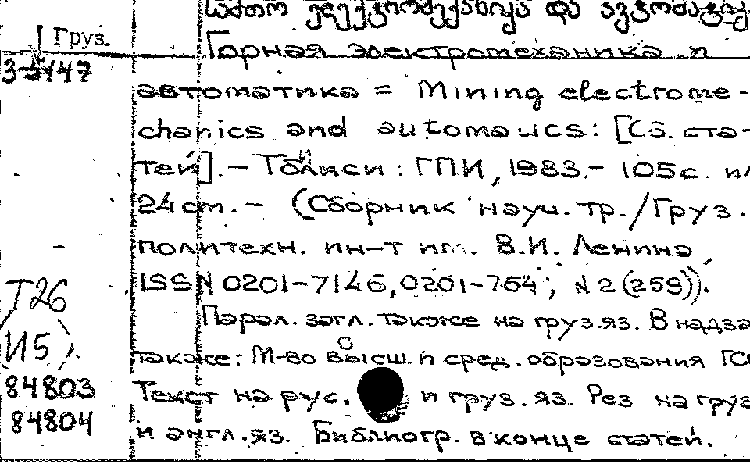 საძთო ელექტრომექანიკა და ავტომატიკ
Груз.
Горная электромеханика и
3-5147
автоматика = Mining electrome-
chanics and automatics: [Сб. ста-
тей]. – Тбилиси: ГПИ, 1983. – 105с. ил
24 cm. – (Сборник науч. тр./Груз.
политехн. ин-т им. В.И. Ленина,
ISSN 0201-7146, 0201-764, N 2 (259)).
Т26
Парал. загл. также на груз.яз. В надза
(И5).
также: М-во высш. и сред. образования ГС
84803
Текст на рус. и груз. яз. Рез на груз
84804
и англ.яз. Библиогр. в конце статей.